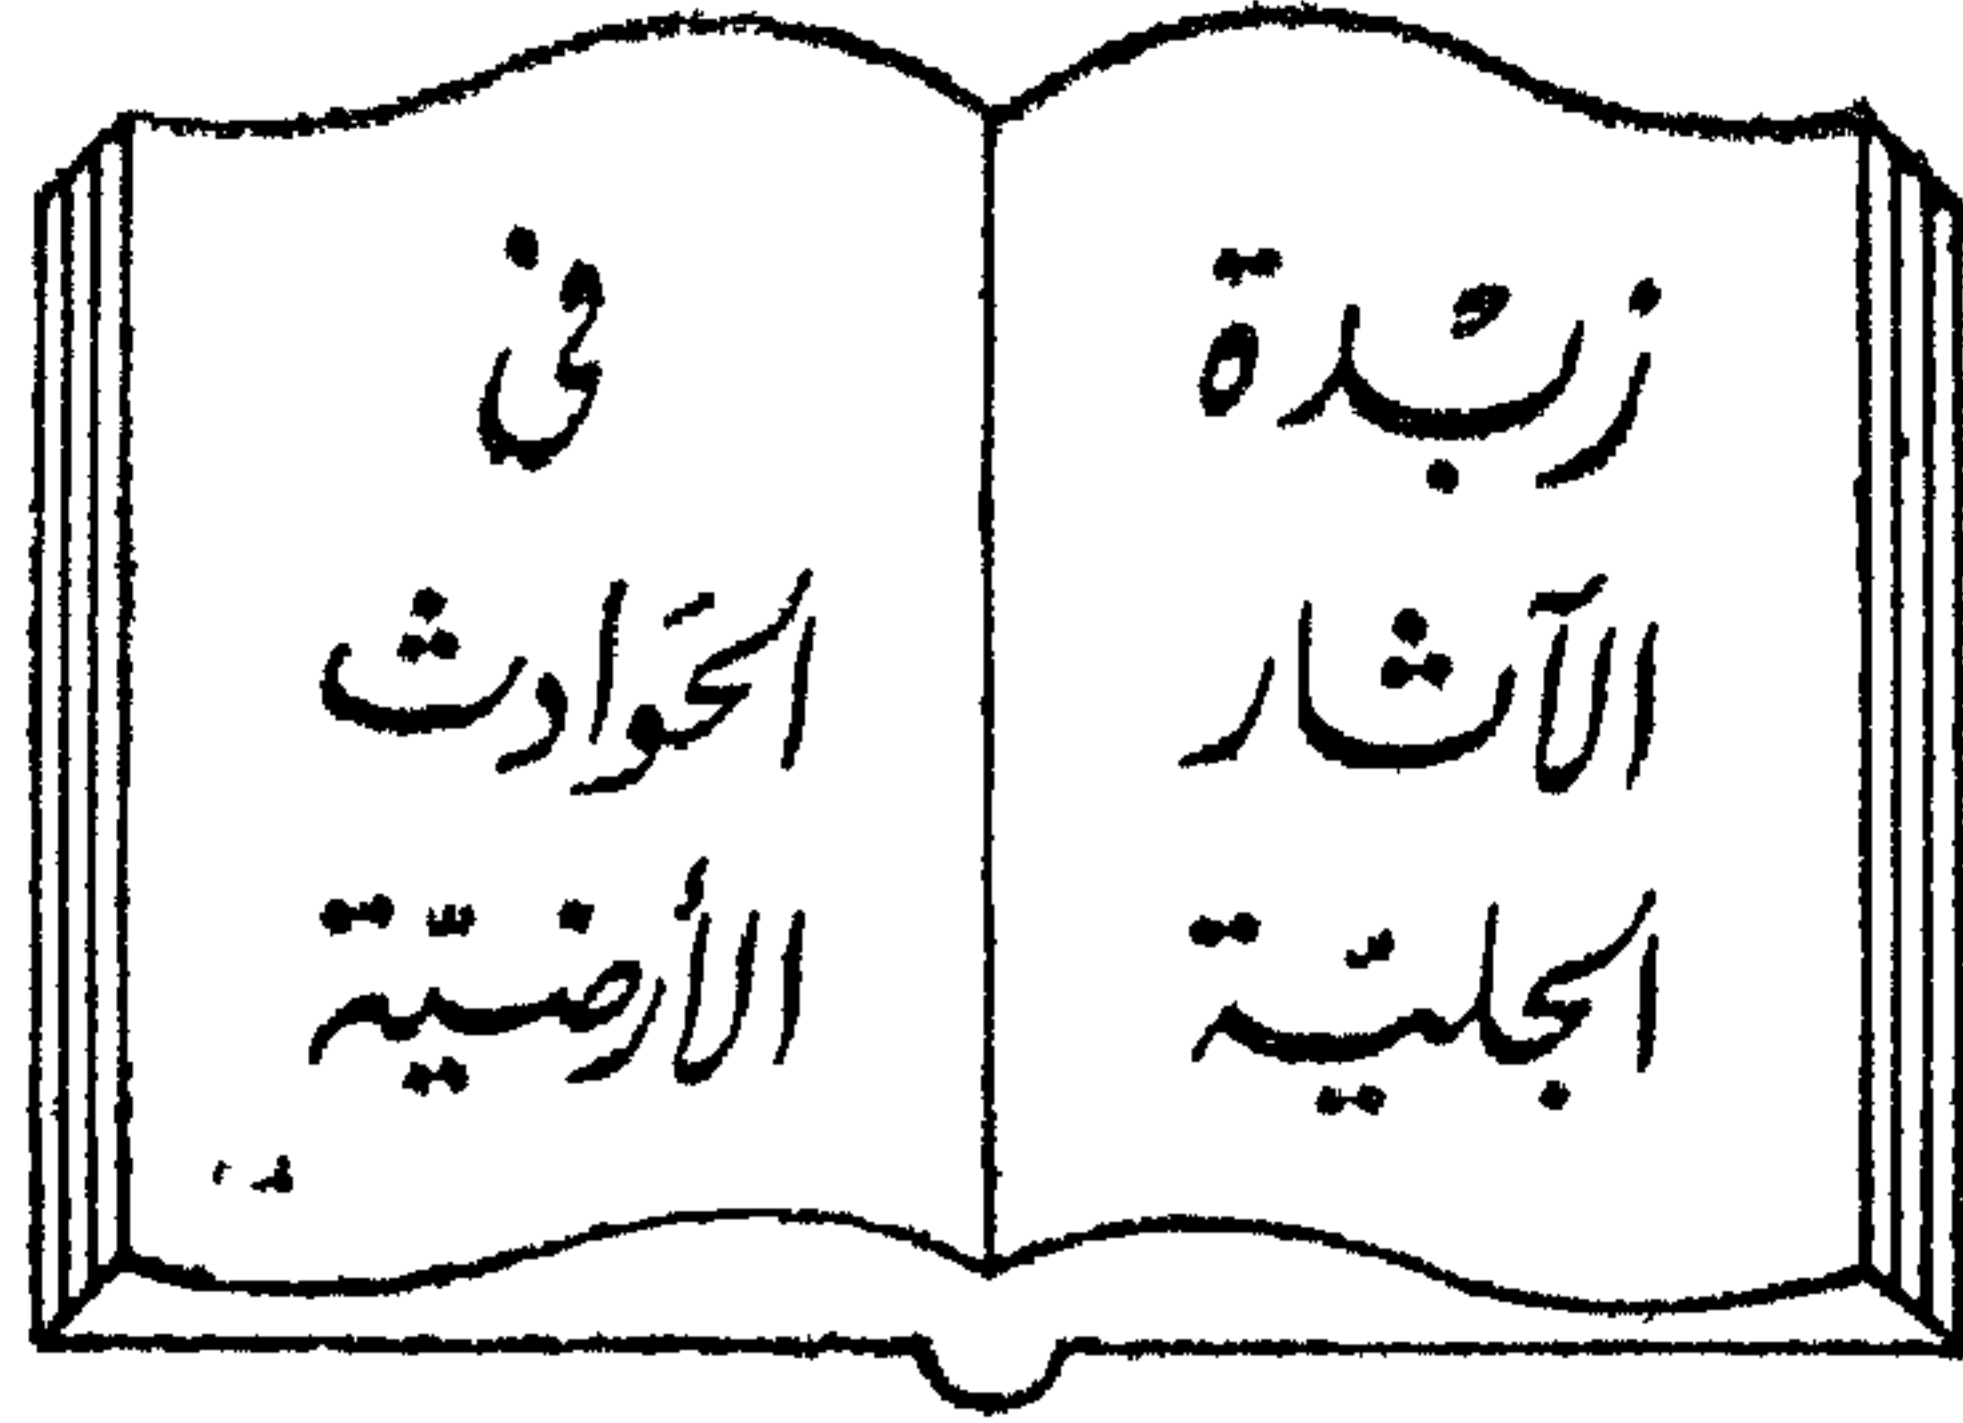 زبدة
الآثار
الجليّة
في
الحَوادث
الأرضيّة